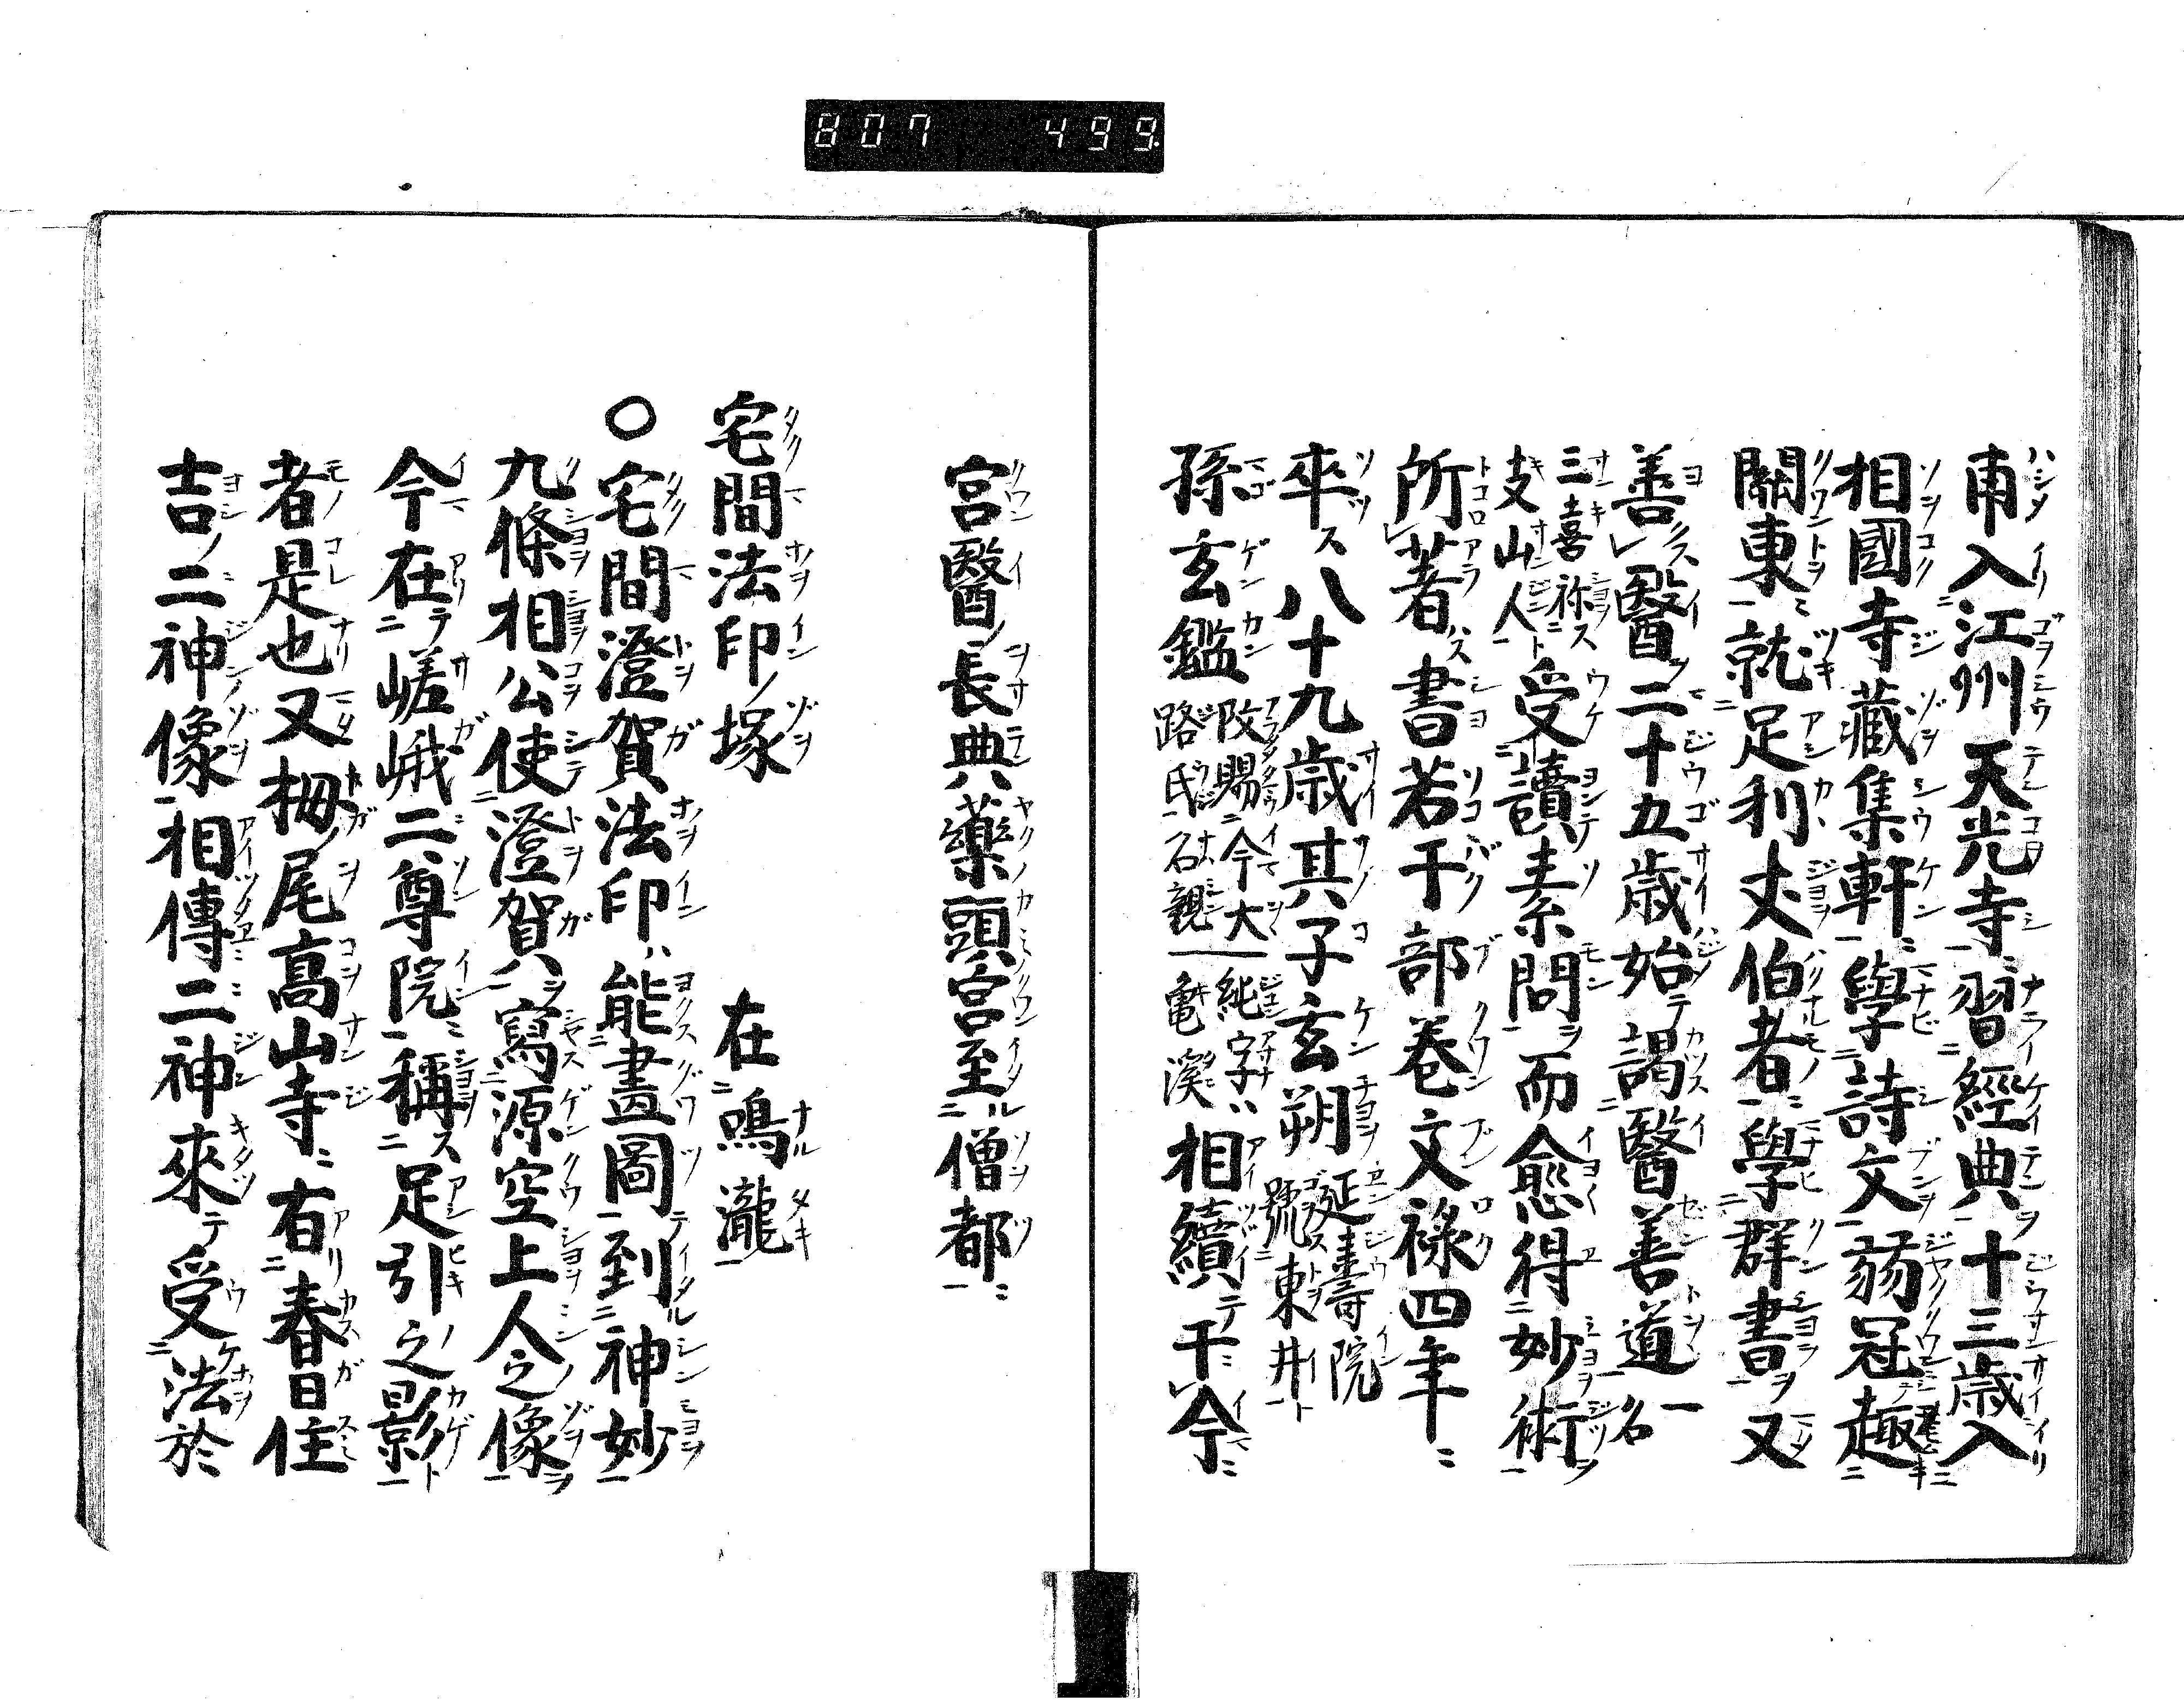 807 499
甫入江州天光寺習經典十三歳入
相國寺藏集軒學詩文弱冠趣
關東就足利丈伯者學群書又
善醫二十五歳始謁醫善道一名
三喜祢
支山人受讀素問而愈得妙術
所著書若干部卷文禄四年
卒八十九歳其子玄朔延壽院
號東井
孫玄鑑改賜今大
路氏石親純字
亀溪相續于今
宮醫長典藥頭宮至僧都
宅間法印塚 在鳴瀧
〇宅間澄賀法印能畫圖到神妙
九條相公使澄賀寫源空上人之像
今在嵯峨二尊院稱足引之影
者是也又栂尾高山寺有春日住
吉二神像相傳二神來受法於